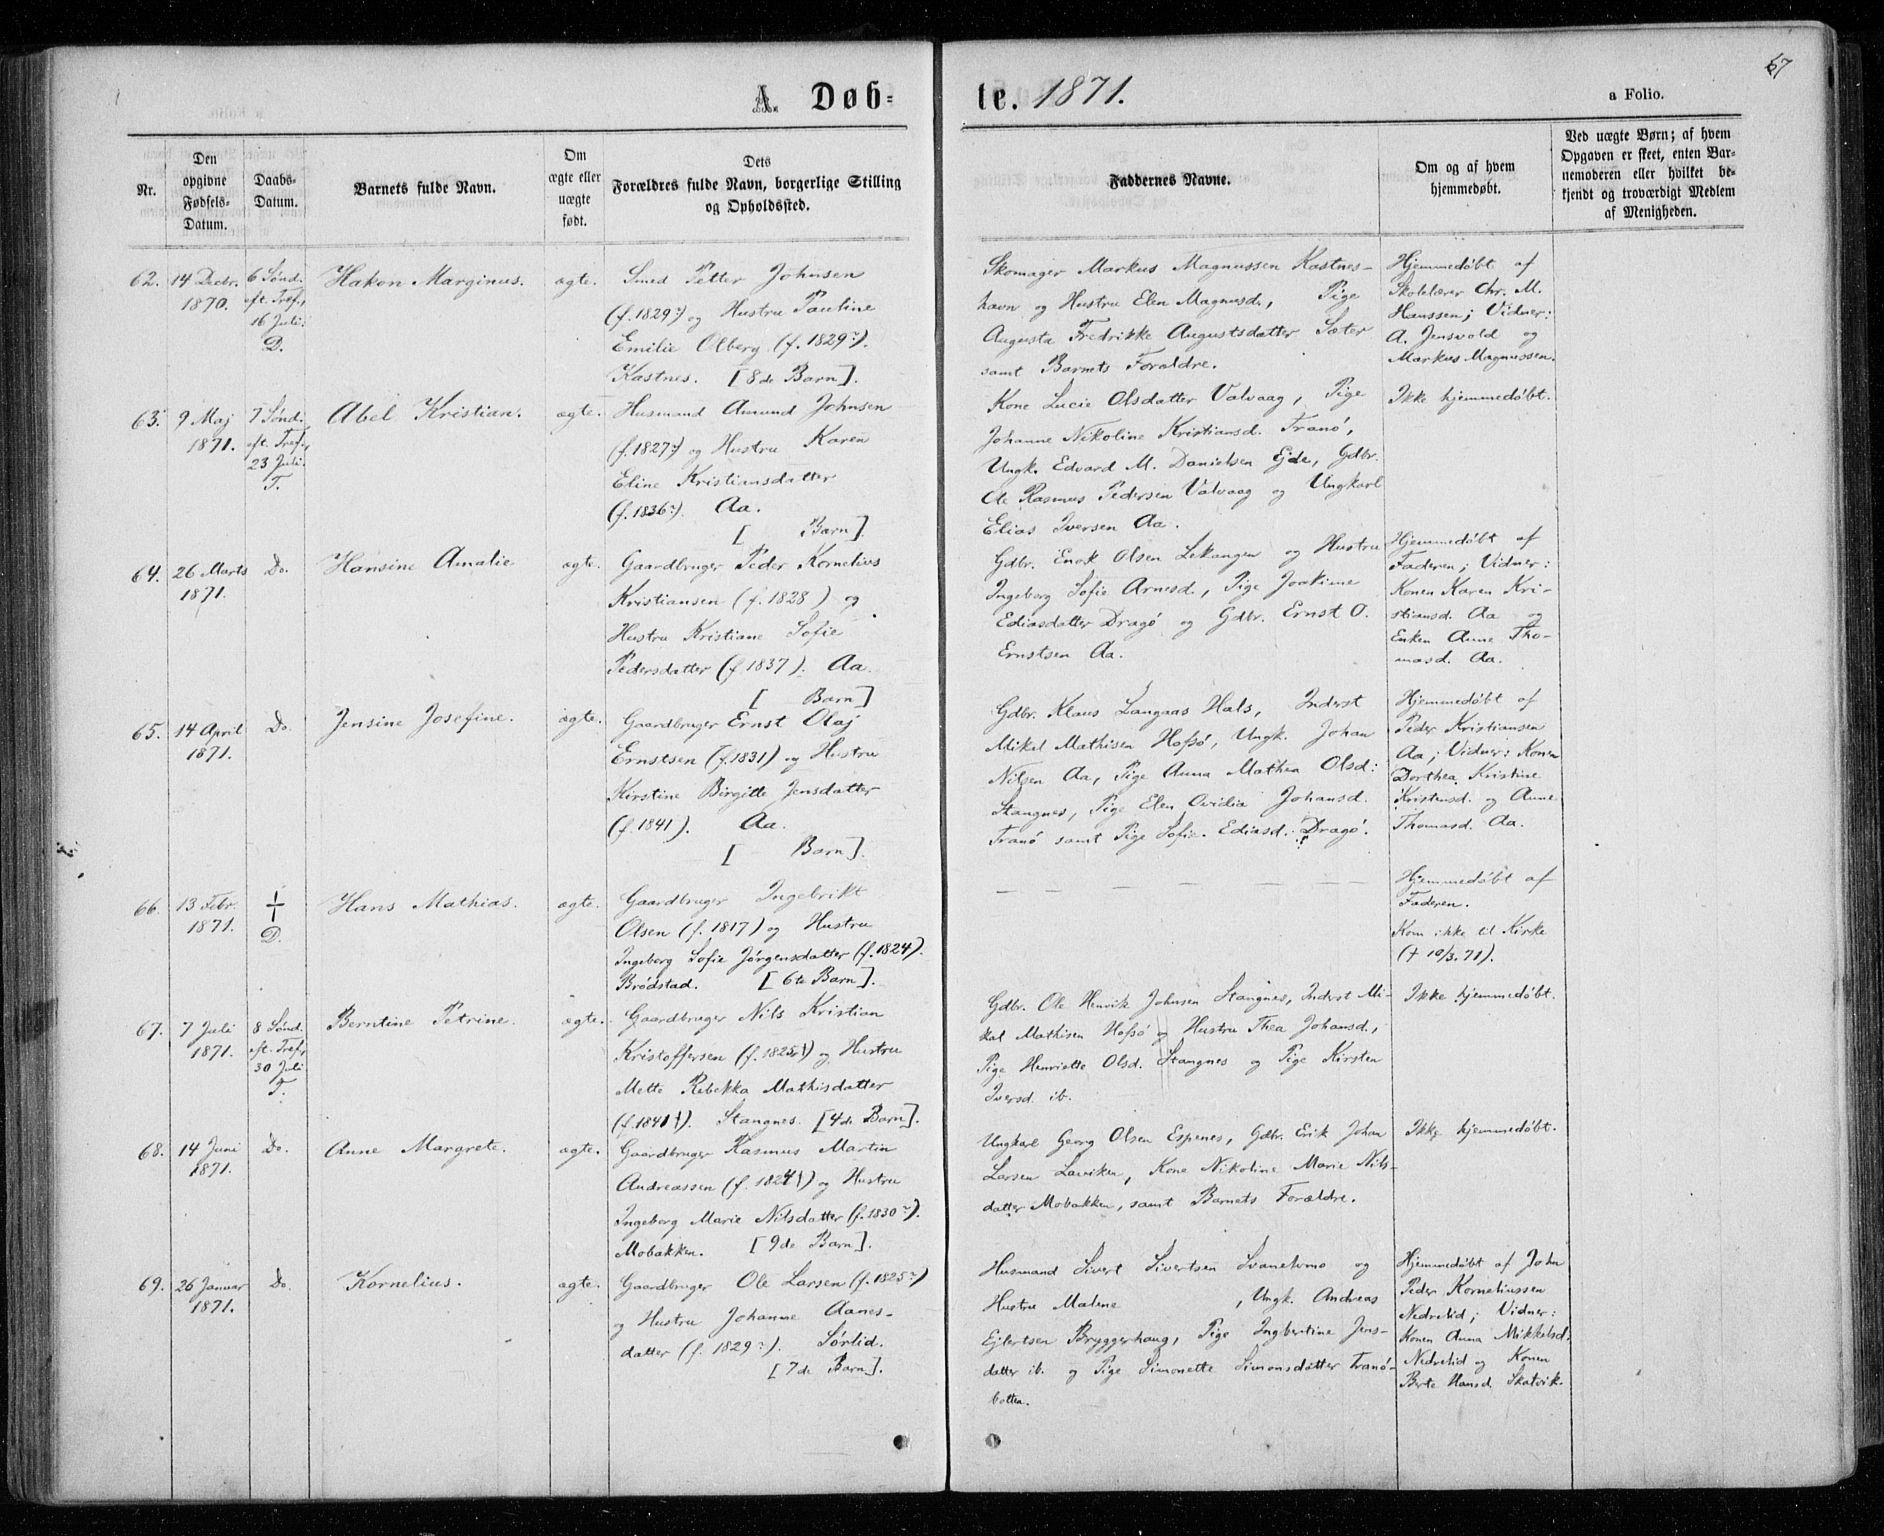 A Døb=
te. 1871.
67
a Folio.
Nr.
Den opgivne Fødsels-Datum.
Daabs-Datum.
Barnets fulde Navn.
Om ægte eller uægte født.
Dets Forældres fulde Navn, borgerlige Stilling og Opholdssted.
Faddernes Navne.
Om og af hvem hjemmedøbt.
Ved uægte Børn; af hvem Opgaven er skeet, enten Barnemoderen eller hvilket bekjendt og troværdigt Medlem af Menigheden.
62.
14 Decbr.
1870.
6 Sønd.
eft. Tref.,
16 Juli.
D.
Hakon Marginus.
ægte.
Smed Petter Johnsen
(f. 1829 ) og Hustru Pauline
Emilie Olberg (f. 1829 ).
Kastnes. [8de Barn].
Skomager Markus Magnussen Kastnes-
havn og Hustru Elen Magnusd., Pige
Augusta Fredrikke Augustsdatter Sæter
samt Barnets Forældre.
Hjemmedøbt af
Skolelærer Chr. M.
Hanssen; Vidner:
A. Jensvold og
Markus Magnussen.
63.
9 Maj
1871.
7 Sønd.
eft. Tref.,
23 Juli.
T.
Abel Kristian.
ægte.
Husmand Amund Johnsen
(f. 1827 ) og Hustru Karen
Eline Kristiansdatter
(f. 1836 ). Aa.
[ Barn].
Kone Lucie Olsdatter Valvaag, Pige
Johanne Nikoline Kristiansd. Tranö,
Ungk. Edvard M. Danielsen Ejde, Gdbr.
Ole Rasmus Pedersen Valvaag og Ungkarl
Elias Iversen Aa.
Ikke hjemmedøbt.
64.
26 Marts
1871.
Do.
Hansine Amalie
ægte.
Gaardbruger Peder Kornelius
Kristiansen (f. 1828 ) og
Hustru Kristiane Sofie
Pedersdatter (f. 1837 ). Aa.
[ Barn]
Gdbr. Enok Olsen Lekangen og Hustru
Ingeborg Sofie Arnesd., Pige Joakime
Ediasdatter Dragö og Gdbr. Ernst O.
Ernstsen Aa.
Hjemmedøbt af
Faderen; Vidner:
Konen Karen Kri-
stiansd. Aa og
Enken Anne Tho-
masd. Aa.
65.
14 April
1871.
Do.
Jensine Josefine.
ægte.
Gaardbruger Ernst Olaj
Ernstsen (f. 1831) og Hustru
Kirstine Birgitte Jensdatter
(f. 1841). Aa.
[ Barn].
Gdbr. Klaus Langaas Hals, Inderst
Mikel Mathisen Hofsö, Ungk. Johan
Nilsen Aa, Pige Anna Mathea Olsd:
Stangnes, Pige Elen Ovidia Johansd.
Tranö samt Pige Sofie Ediasd. Dragö.
Hjemmedøbt af
Peder Kristiansen
Aa; Vidner: Konen
Dorthea Kristine
Kristensd. og Anne
Thomasd. Aa.
66.
13 Febr.
1871.
†
D.
Hans Mathias.
ægte.
Gaardbruger Ingebrikt
Olsen (f. 1817) og Hustru
Ingeborg Sofie Jörgensdatter (f. 1824).
Brödstad. [6te Barn].
— — — — — — —
Hjemmedøbt af
Faderen.
Kom ikke til Kirke
(† 10/3. 71).
67.
7 Juli
1871.
8 Sønd.
eft. Tref.,
30 Juli
T.
Berntine Petrine.
ægte.
Gaardbruger Nils Kristian
Kristoffersen (f. 1825 ) og Hustru
Mette Rebekka Mathisdatter
(f. 1841 ). Stangnes. [4de Barn].
Gdbr. Ole Henrik Johnsen Stangnes, Inderst Mi-
kal Mathisen Hofsö og Hustru Thea Johansd.,
Pige Henriette Olsd. Stangnes og Pige Kirsten
Iversd. ib.
Ikke hjemmedøbt.
68.
14 Juni
1871.
Do.
Anne Margrete.
ægte.
Gaardbruger Rasmus Martin
Andreassen (f. 1824 ) og Hustru
Ingeborg Marie Nilsdatter (f. 1830 ).
Mobakken. [9de Barn].
Ungkarl Georg Olsen Espenes, Gdbr. Erik Johan
Larsen Laviken, Kone Nikoline Marie Nils-
datter Mobakken, samt Barnets Forældre.
Ikke hjemmedøbt.
69.
26 Januar
1871.
Do.
Kornelius.
ægte.
Gaardbruger Ole Larsen (f. 1825 )
og Hustru Johanne Aanes-
datter (f. 1829 ). Sörlid.
[7de Barn].
Husmand Sivert Sivertsen Svanelvmo og
Hustru Malene , Ungk. Andreas
Ejlertsen Bryggerhaug, Pige Ingbertine Jens-
datter ib. og Pige Simonette Simonsdatter Tranö-
botten.
Hjemmedøbt af John
Peder Korneliussen
Nedrelid; Vidner:
Konen Anna Mikkelsd.
Nedrelid og Konen
Berte Hansd. Skatvik.